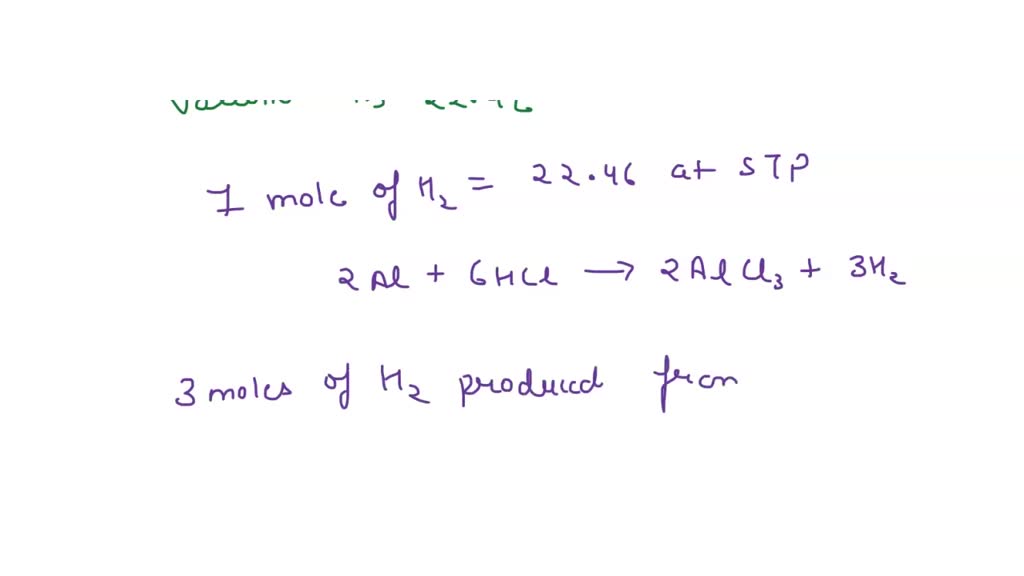 1 mole of H₂ = 22.46 at STP
2Al + 6HCl → 2AlCl₃ + 3H₂
3 moles of H₂ produced from